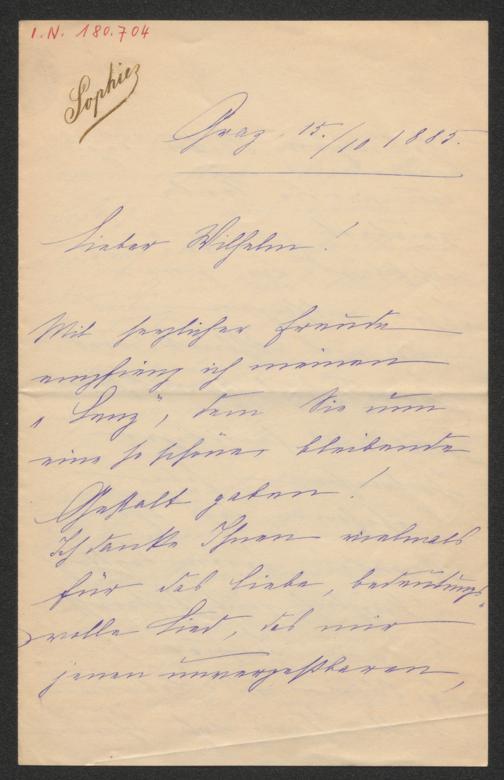 I.N. 180.704
Sophie
Graz, 15./10 1885.
Lieber Wilhelm!
Mit herzlicher Freude
empfieng ich meinen
„Lenz“, dem Sie nun
eine so schöne, bleibende
Gestalt gaben!
Ich danke Ihnen vielmals
für das liebe, bedeutungs-
volle Lied, das mir
jenen unvergeßbaren,